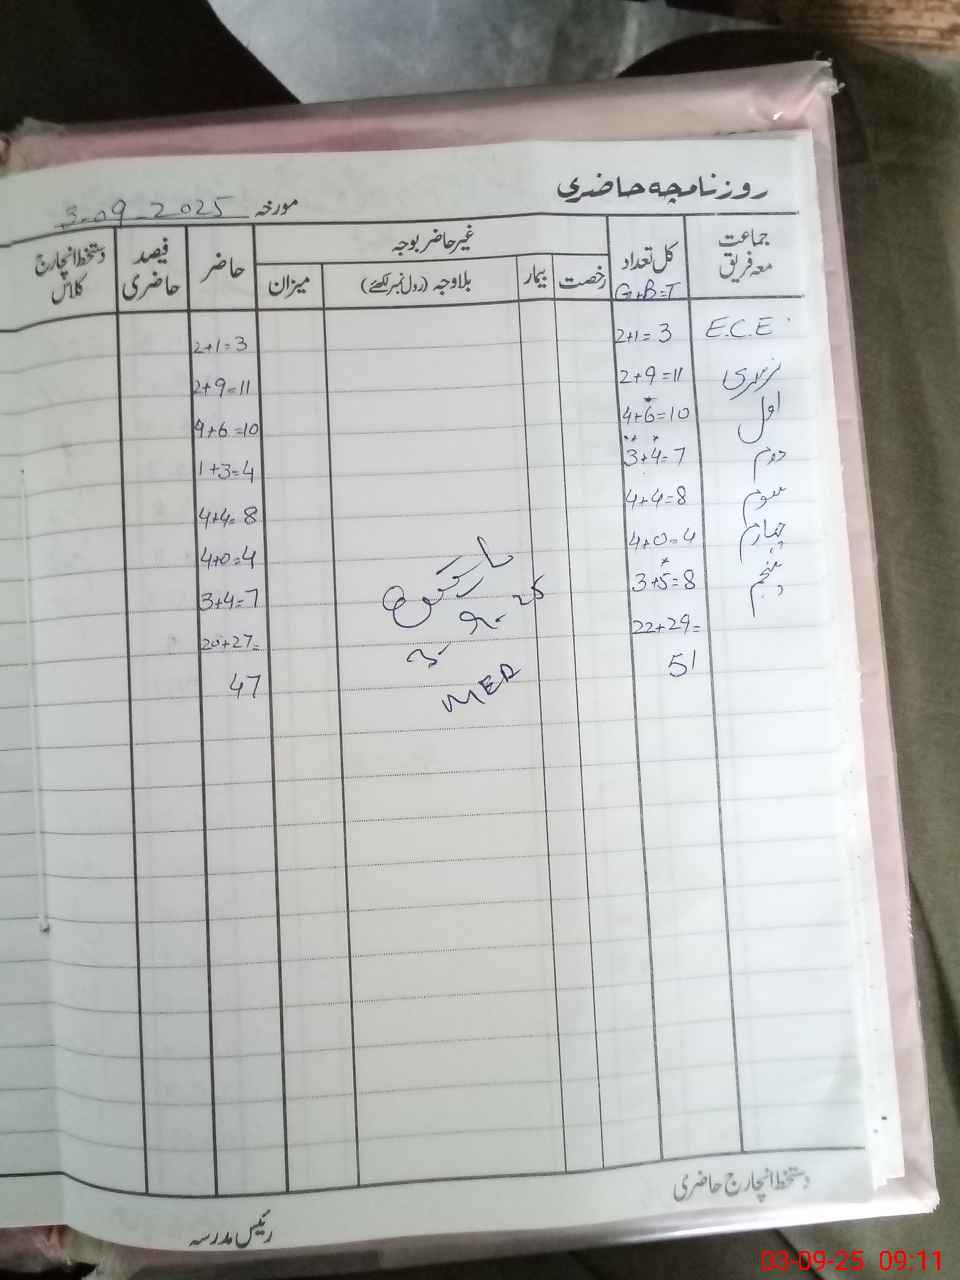 روزنامچہ حاضری
مورخہ 3-09-2025
جماعت معہ فریق کل تعداد غیر حاضر بوجہ حاضر فیصد حاضری دستخط انچارج کلاس
G+B=T رخصت بیمار بلاوجہ (رول نمبر لکھئے) میزان
E.C.E 2+1=3 2+1=3
نرسری 2+9=11 2+9=11
اول 4+6=10 4+6=10
دوم 3+4=7 1+3=4
سوم 4+4=8 4+4=8
چہارم 4+0=4 4+0=4
پنجم 3+5=8 3+4=7
22+29= 20+27=
51 47
3-9-25
MEA
دستخط انچارج حاضری
رئیس مدرسہ
03-09-25 09:11